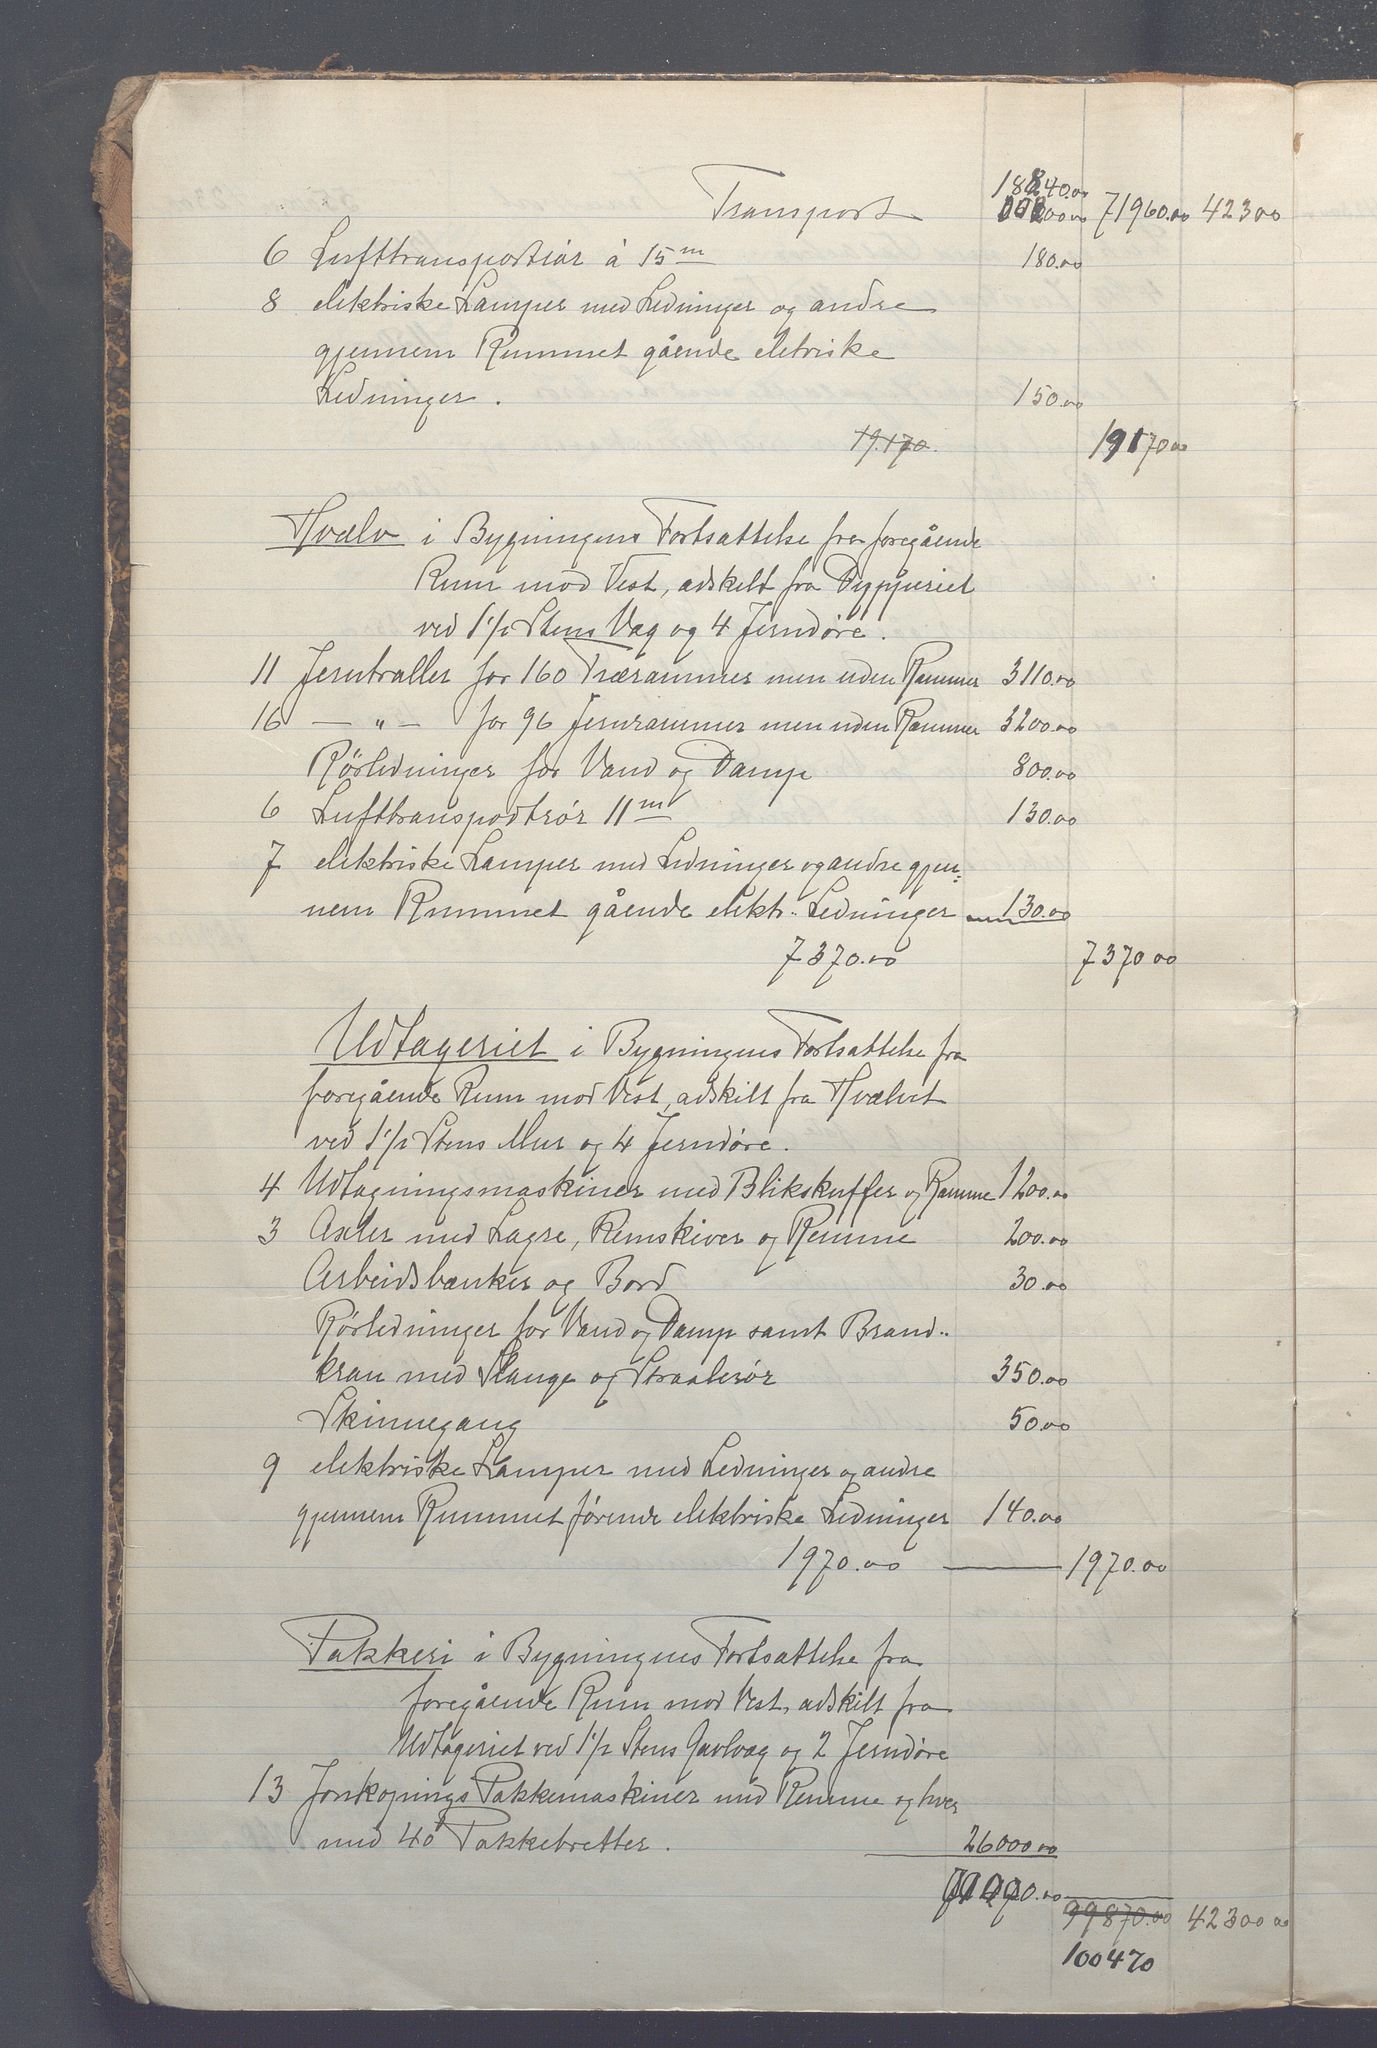 18840.00
Transport 71960.00 42300
6 Lufttransportrör á 15 m 180.00
8 elektriske Lamper med Ledninger og andre
gjennem Rummet gående eletriske
Ledninger. 150.00
19.170. 19170 00
Hvælv i Bygningens Fortsættelse fra foregående
Rum mod Vest, adskelt fra Dypperiet
ved 1 1/2 Stens Væg og 4 Jerndøre.
11 Jerntraller for 160 Trærammer men uden Rammer 3110.00
16 — " — for 96 Jernrammer men uden Rammer 3200.00
Rørledninger for Vand og Damp 800.00
6 Lufttranspodtrör 11 m 130.00
7 elektriske Lamper med Ledninger og andre gjen-
nem Rummet gående elekt.. Ledninger 130.00
7370.00 7370 00
Udtageriet i Bygningens Fortsættelse fra
foregående Rum mod Vest, adskilt fra Hvælvet
ved 1 1/2 Stens Mur og 4 Jerndøre.
4 Udtagningsmaskiner med Blikskuffer og Remme 1200.00
3 Axler med Lagre, Remskiver og Remme 200.00
Arbeidsbænker og Bord 30.00
Rørledninger for Vand og Damp samt Brand..
kran med Slange og Straalerør 350.00
Skinnegang 50.00
9 elektriske Lamper med Ledninger og andre
gjennem Rummet førende elektriske Ledninger 140.00
1970.00 — 1970.00
Pakkeri i Bygningens Fortsættelse fra
foregående Rum mod Vest, adskilt fra
Udtageriet ved 1 1/2 Stens Gavlvæg og 2 Jerndøre
13 Jonkopings Pakkemaskiner med Remme og hver
med 40 Pakkebretter. 26000 00
99870.00 42300 00
100470